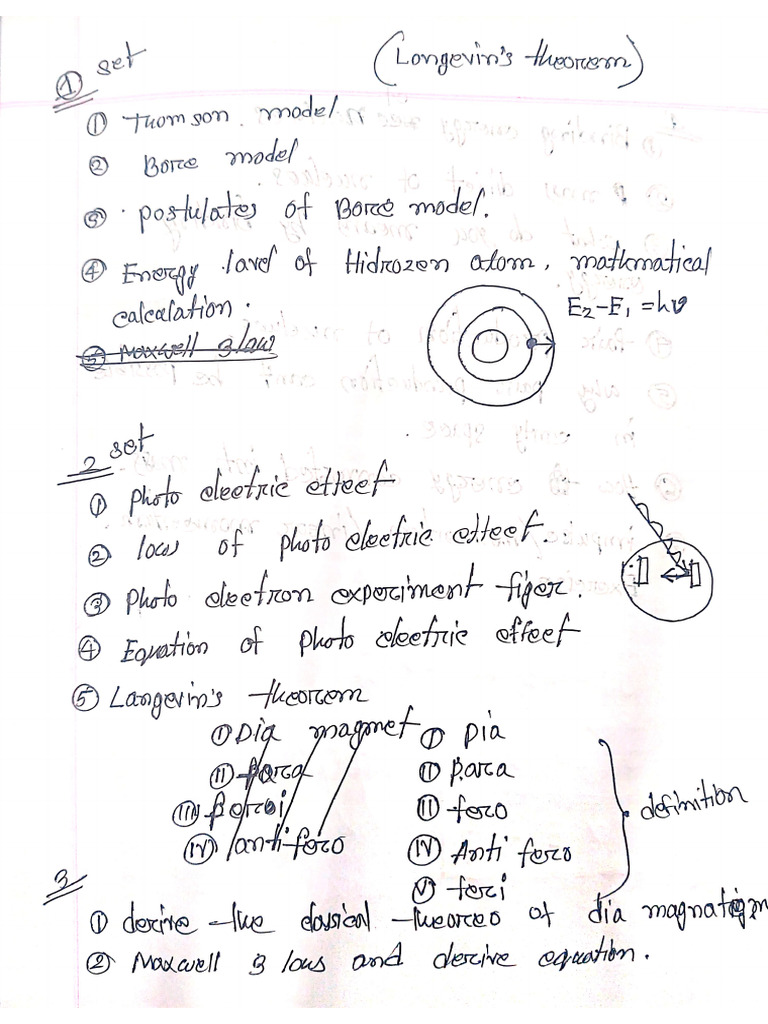 ① set
(Longevin's theorem)
① Thomson. model
② Bore model
③ postulates of Bore model.
④ Energy lavel of Hidrozen atom, mathmatical
calcalation.
E₂-E₁=hν
⑤ Maxwell 3 law
2 set
① photo electric effect
② low of photo electric effect.
③ photo electron experiment figer.
④ Equation of photo electric effect
⑤ Langevin's theorem
① Dia magnet
① Dia
⑪ para
⑪ para
⑪ foro
ⅳ anti foro
ⅳ Anti foro
ⅴ feri
definition
3
① derive the classical theoreo of dia
② Maxwell 3 lows and derive equation.